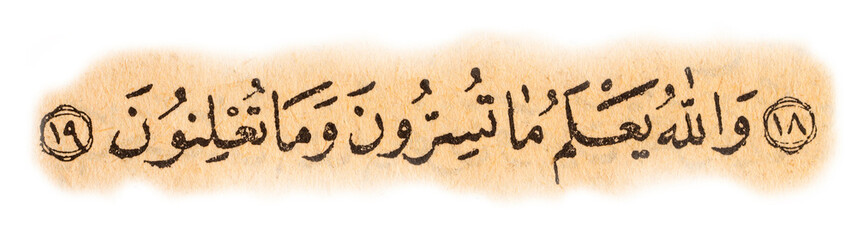 ١٨ وَاللَّهُ يَعْلَمُ مَا تُسِرُّونَ وَمَا تُعْلِنُونَ ١٩